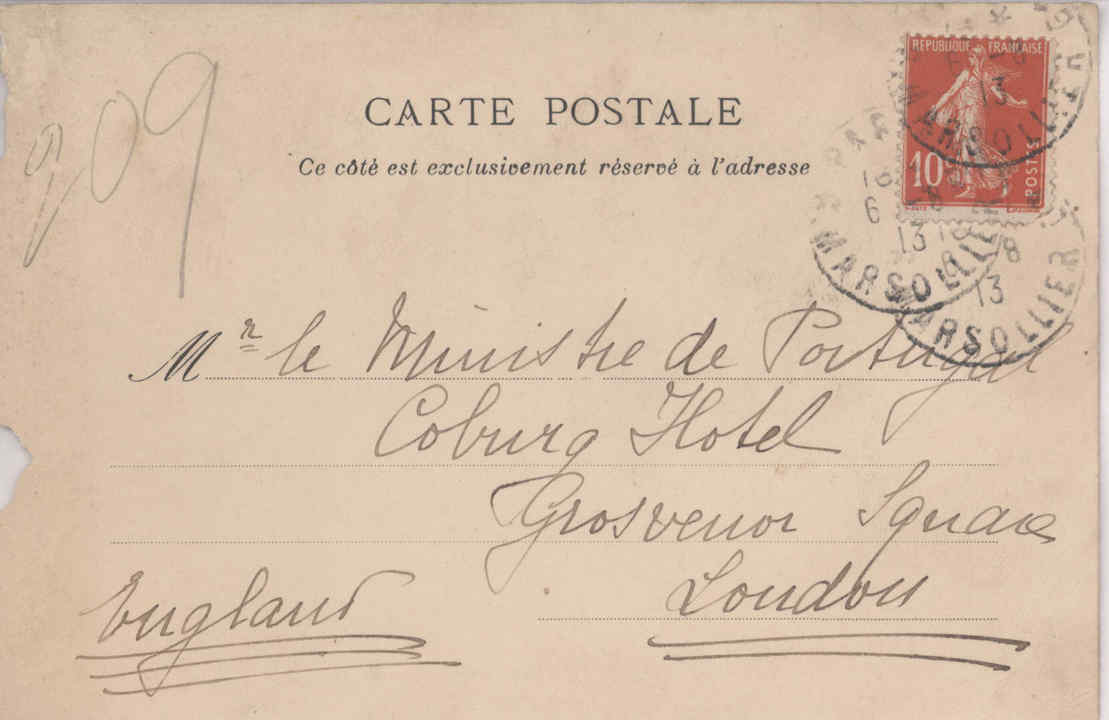 209
CARTE POSTALE
Ce côté est exclusivement réservé à l'adresse
REPUBLIQUE FRANÇAISE
10
POSTES
13
MARSOLLIER
PARIS
16
6 8
13
MARSOLLIER
8
13
MARSOLLIER
Mr le Ministre de Portugal
Coburg Hotel
Grosvenor Square
London
England